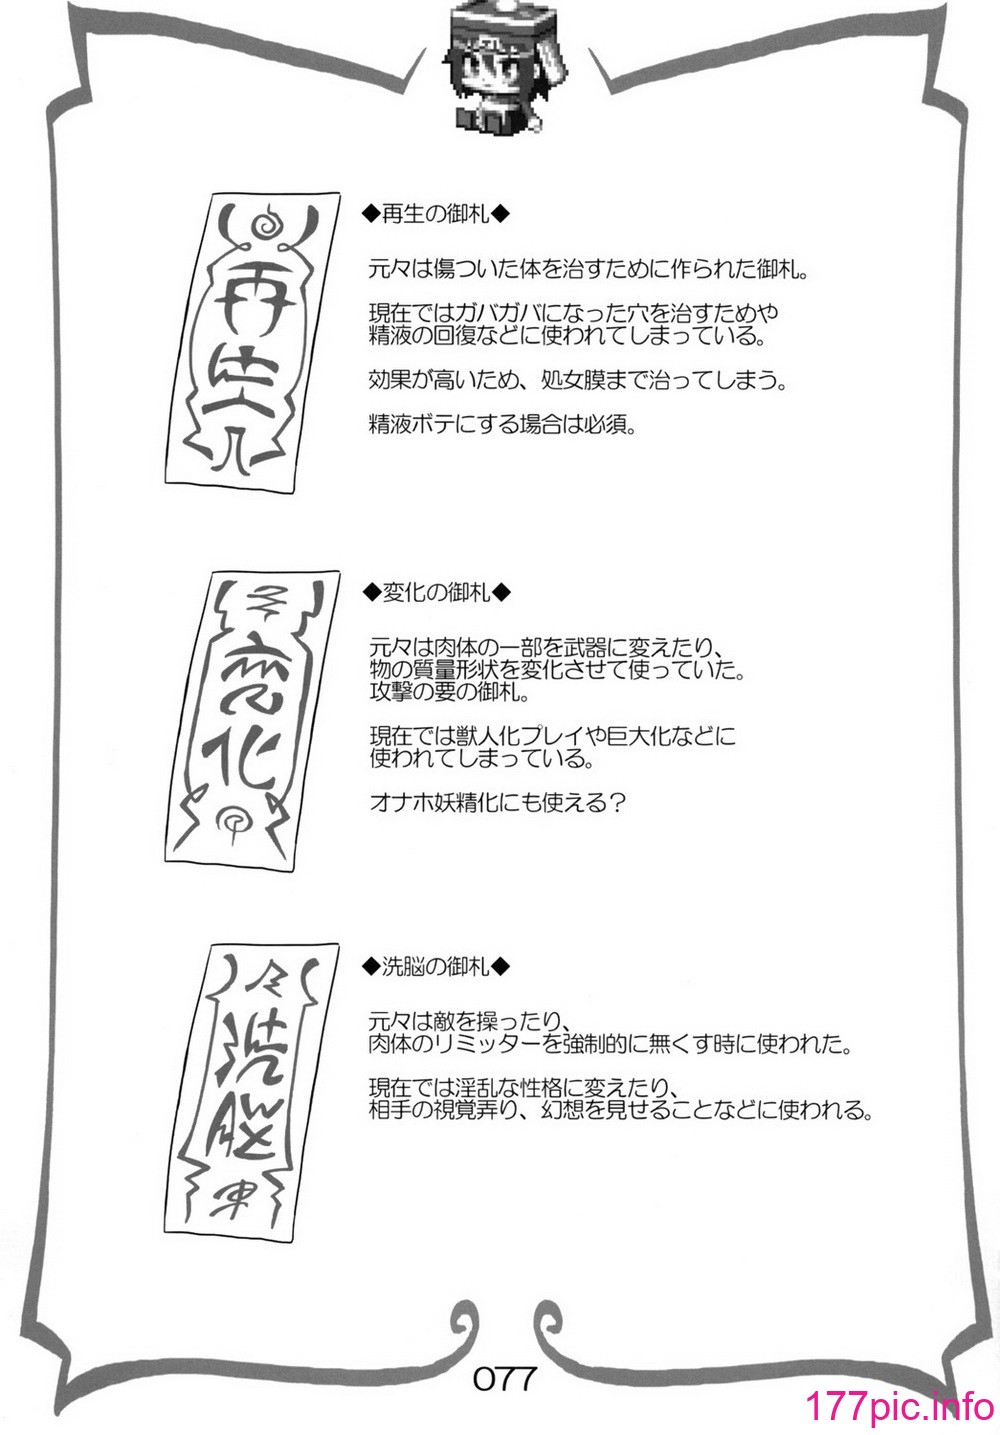 再生
◆再生の御札◆
元々は傷ついた体を治すために作られた御札。
現在ではガバガバになった穴を治すためや
精液の回復などに使われてしまっている。
効果が高いため、処女膜まで治ってしまう。
精液ボテにする場合は必須。
変化
◆変化の御札◆
元々は肉体の一部を武器に変えたり、
物の質量形状を変化させて使っていた。
攻撃の要の御札。
現在では獣人化プレイや巨大化などに
使われてしまっている。
オナホ妖精化にも使える？
洗脳
◆洗脳の御札◆
元々は敵を操ったり、
肉体のリミッターを強制的に無くす時に使われた。
現在では淫乱な性格に変えたり、
相手の視覚弄り、幻想を見せることなどに使われる。
077
177pic.info